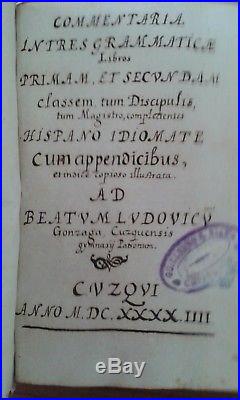 COMMENTARIA
IN TRES GRAMMATICÆ
Libros
PRIMAM, ET SECVNDAM
classem tum Discipulis,
tum Magistro, complectentis
HISPANO IDIOMATE
Cum appendicibus,
et indice copioso illustrata.
AD
BEATVM LVDOVICV
Gonzaga, Cuzquensis
gymnasy Patronum
CVZQVI
ANNO M.DC.XXXXIIII